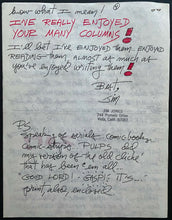 know what I mean!
I'VE REALLY ENJOYED
YOUR MANY COLUMNS!
I'll bet I've ENJOYED them ENJOYED
READING them ALMOST AS much AS
you've ENJOYED writing them!
Best,
Jim
JIM JONES
Ps:
Speaking of serials - comic books -
comic strips. PULPS did
my version of the old cliche
that has been one of all
GOOD LORD! - GASP! IT'S...
print, also, enclosed